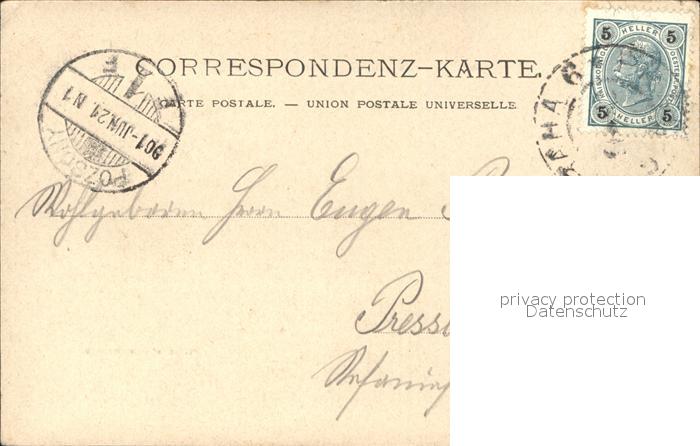 CORRESPONDENZ-KARTE.
CARTE POSTALE. — UNION POSTALE UNIVERSELLE.
5 HELLER 5
5 HELLER 5
901-JUN.21. N1
POZSONY
PRAHA 6
Wohlgeboren Herrn Eugen
Press
privacy protection
Datenschutz